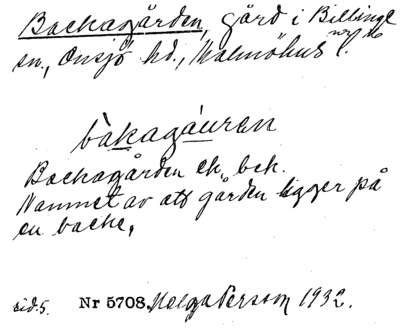 Backagården, gård i Billinge
sn., Onsjö hd., Malmöhus l.
bàkagáuren
Backagården ek. bek.
Namnet av att gården ligger på
en backe.
sid. 5. Nr 5708. Helga Persson 1932.